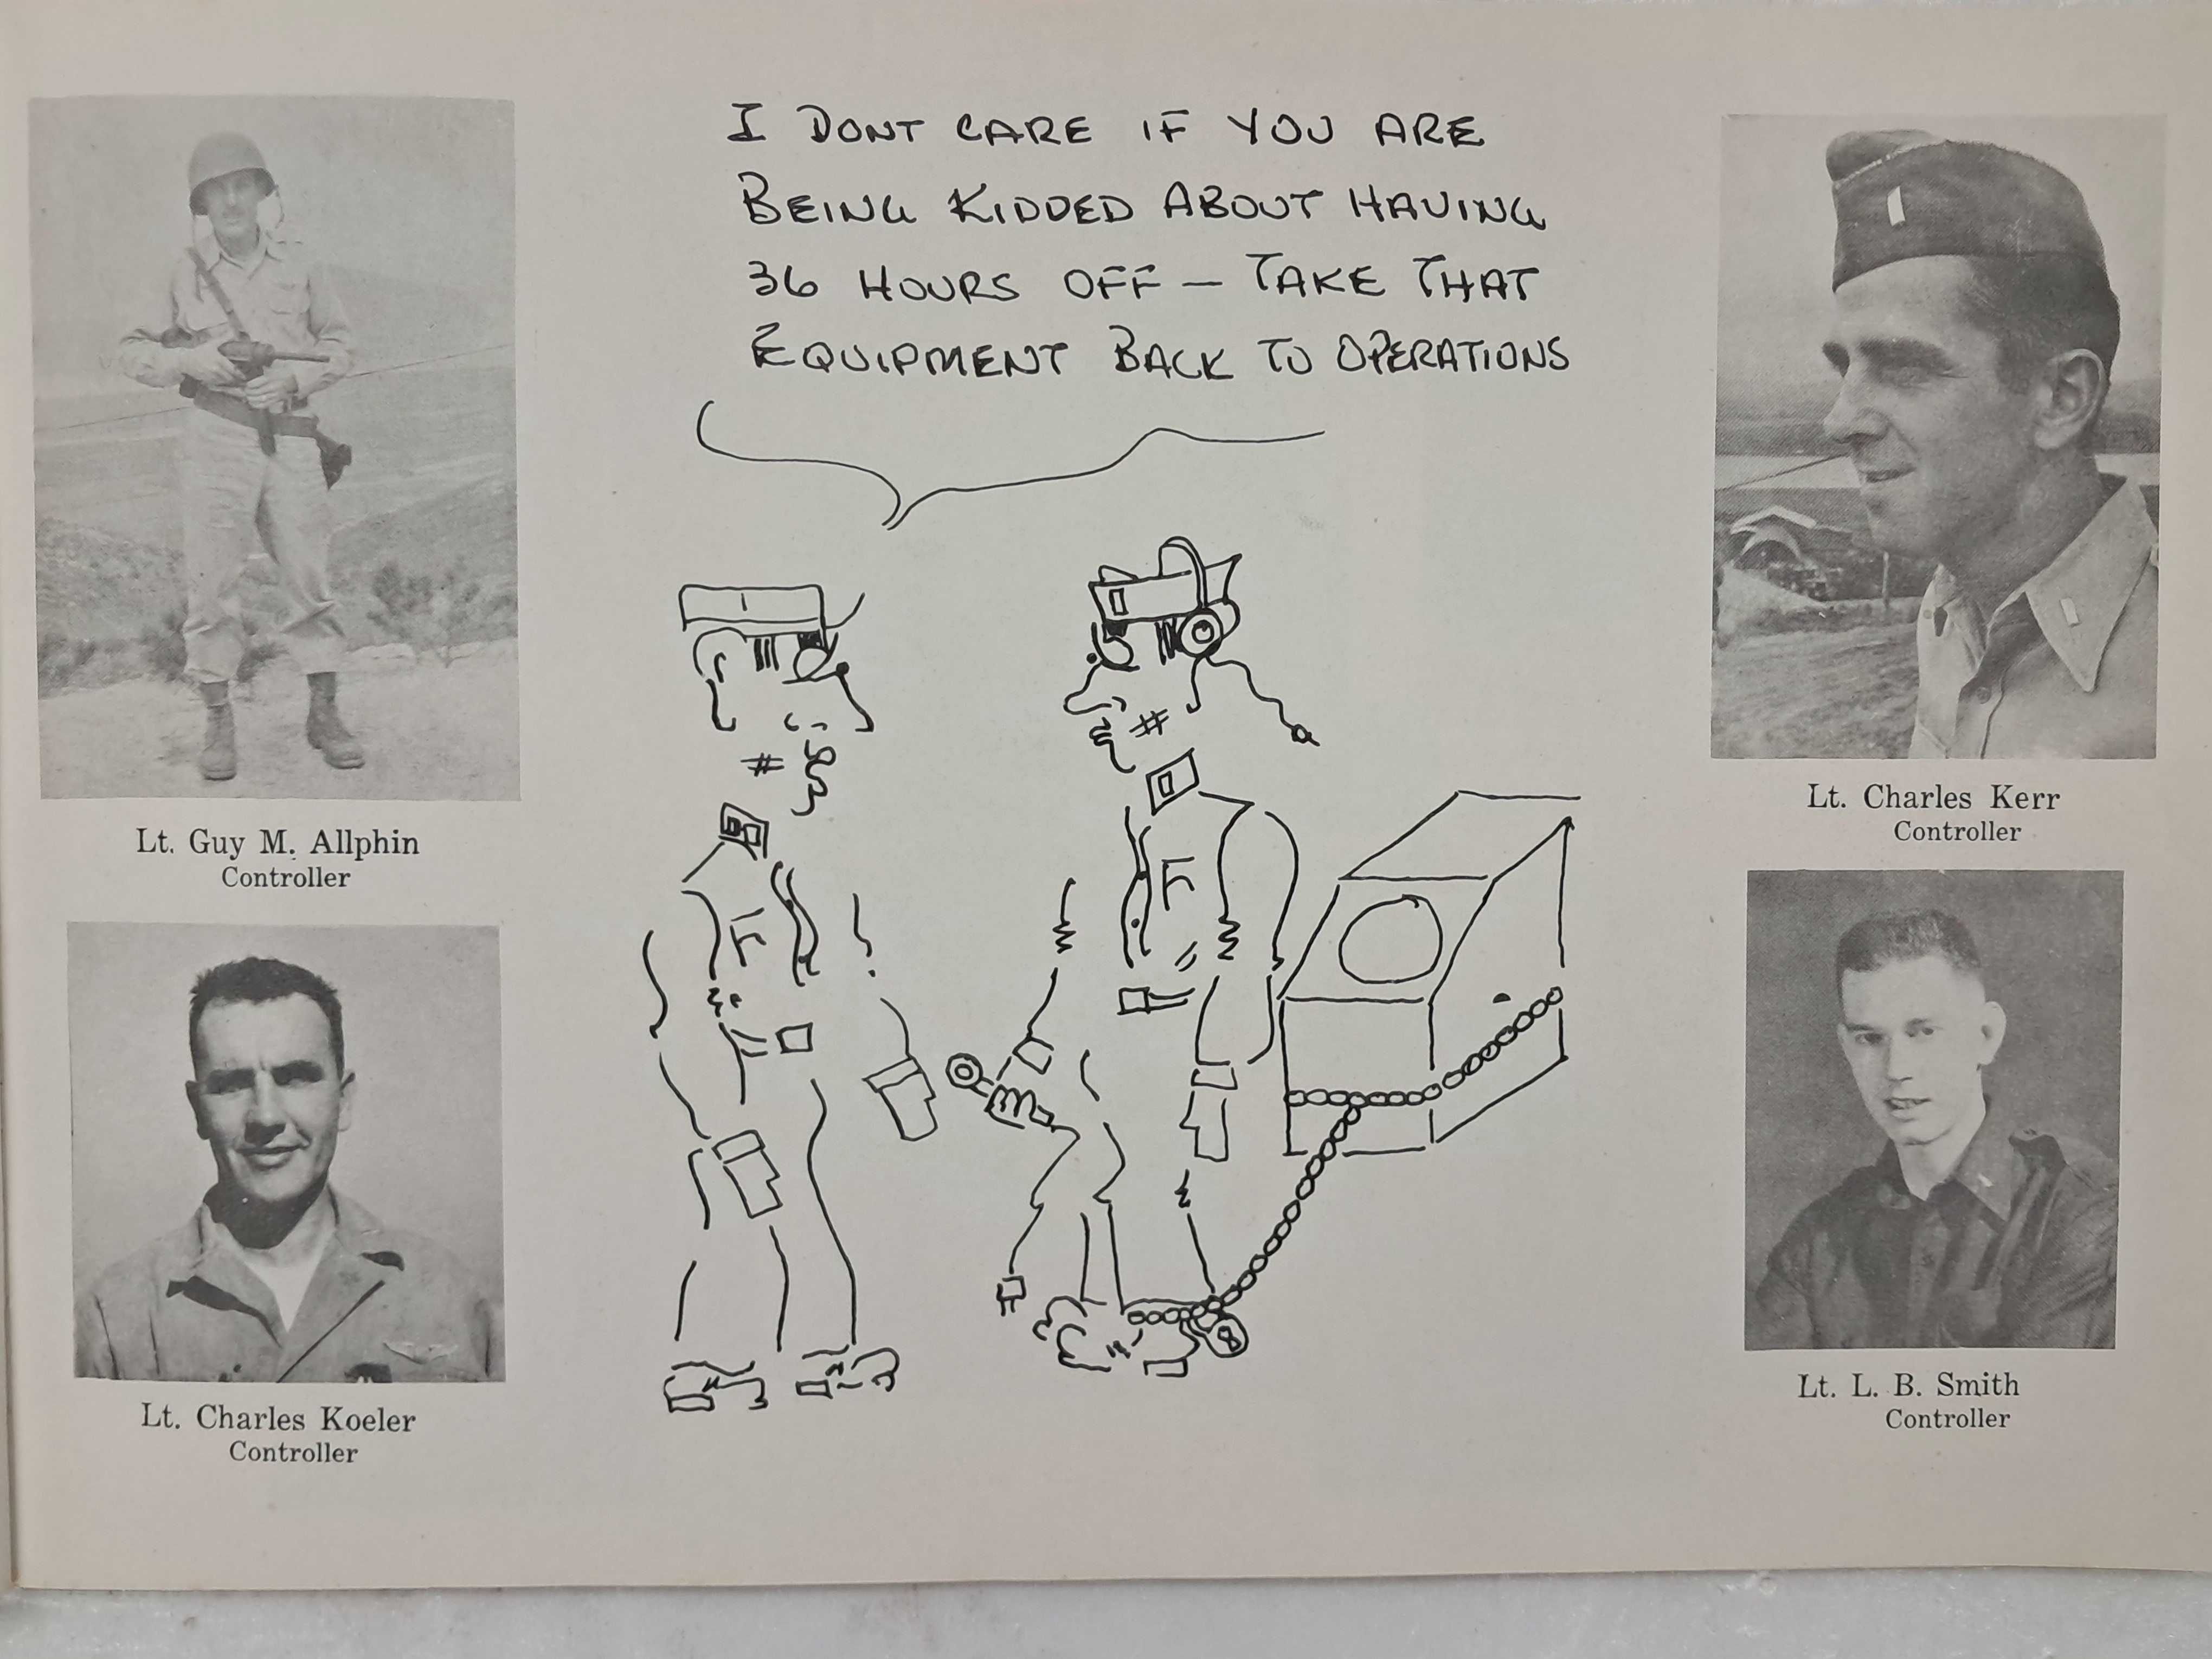 I DONT CARE IF YOU ARE
BEING KIDDED ABOUT HAVING
36 HOURS OFF — TAKE THAT
EQUIPMENT BACK TO OPERATIONS
Lt. Guy M. Allphin
Controller
Lt. Charles Kerr
Controller
Lt. Charles Koeler
Controller
Lt. L. B. Smith
Controller
#
#
8